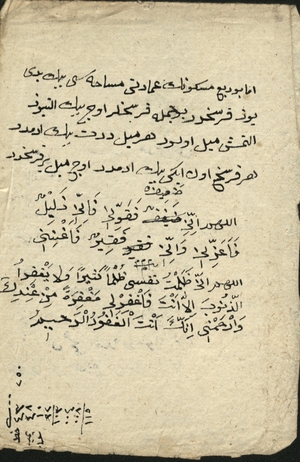 اما بو ربع مسكونك عمارتى مساحه سى بيك يدى
يوز فرسخدر بو جمله فرسخلر اوچ بيك التيوز
التمش ميل اولور هر ميل درت بيك ادمدر
هر فرسخ اون ايكى بيك ادمدر اوچ ميل بر فرسخدر
ضعيف
اللهم انى ضعيف فقونى وانى ذليل
فاعزنى وانى فقير فاغننى
اللهم انى ظلمت نفسى ظلما كثيرا ولا يغفر
الذنوب الا انت فاغفرلى مغفرة من عندك
وارحمنى انك انت الغفور الرحيم